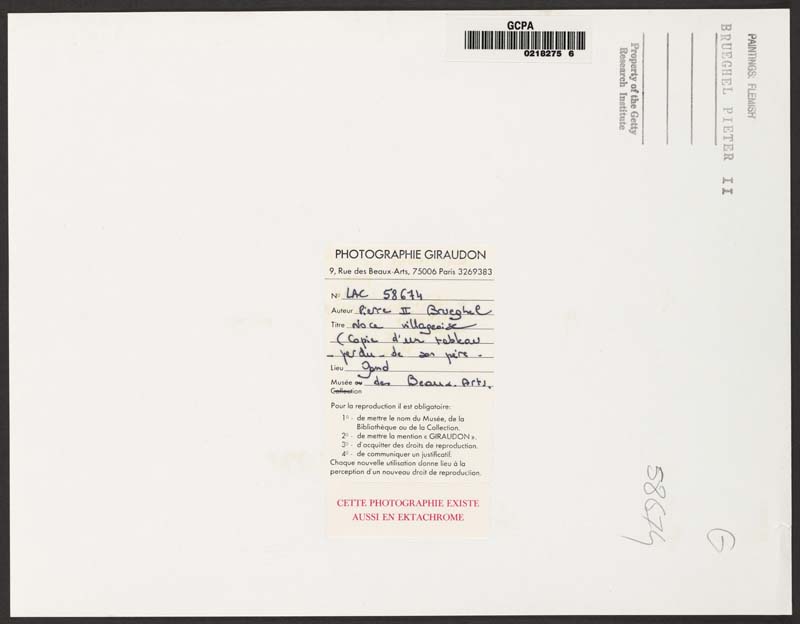 GCPA
0218275 6
PAINTINGS: FLEMISH
BRUEGHEL PIETER II
Property of the Getty
Research Institute
PHOTOGRAPHIE GIRAUDON
9, Rue des Beaux-Arts, 75006 Paris 3269383
No LAC 58674
Auteur Pierre II Brueghel
Titre Noce villageoise
(Copie d'un tableau
perdu - de son père -
Lieu Gand
Musée ou des Beaux-Arts.
Collection
Pour la reproduction il est obligatoire:
1o - de mettre le nom du Musée, de la
Bibliothèque ou de la Collection.
2o - de mettre la mention « GIRAUDON ».
3o - d'acquitter des droits de reproduction.
4o - de communiquer un justificatif.
Chaque nouvelle utilisation donne lieu à la
perception d'un nouveau droit de reproduction.
CETTE PHOTOGRAPHIE EXISTE
AUSSI EN EKTACHROME
58674
G